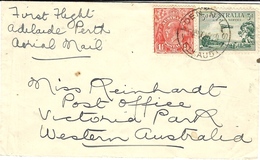 First Flight
Adelaide Perth
Aerial Mail
AUSTRALIA
Miss Reinhardt
Post Office
Victoria Park
Western Australia